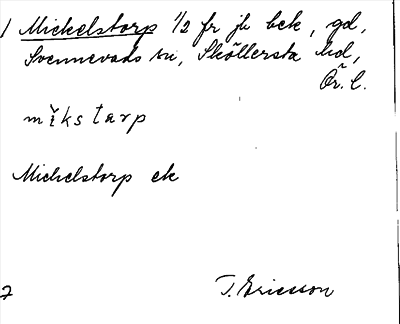 1 Mickelstorp 1/2 fr jb bek, gd,
Svennevads sn, Sköllersta hd,
Ör. l.
mĭks tarp
Mickelstorp ek
7 T. Ericsson